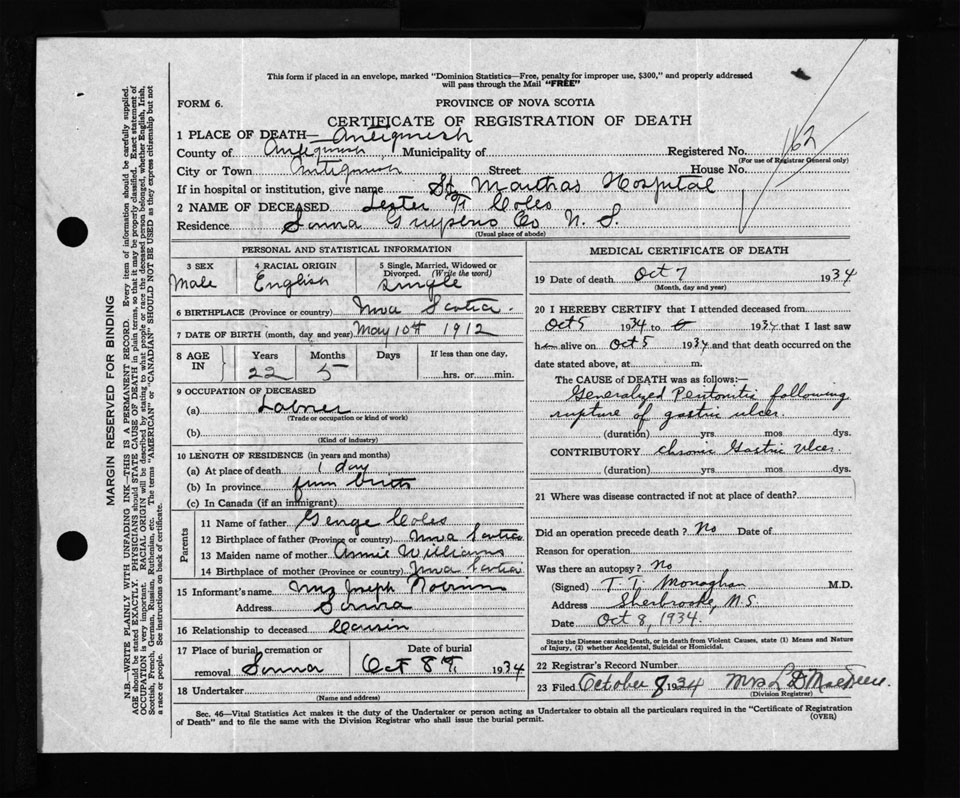 This form if placed in an envelope, marked "Dominion Statistics—Free, penalty for improper use, $300," and properly addressed
will pass through the Mail "FREE"
FORM 6.
PROVINCE OF NOVA SCOTIA
CERTIFICATE OF REGISTRATION OF DEATH
1 PLACE OF DEATH— Antigonish
County of Antigonish Municipality of Registered No. 162
(For use of Registrar General only)
City or Town Antigonish Street House No.
If in hospital or institution, give name St. Marthas Hospital
2 NAME OF DECEASED Lester Coles
Residence Co N. S.
(Usual place of abode)
PERSONAL AND STATISTICAL INFORMATION
3 SEX
Male
4 RACIAL ORIGIN
English
5 Single, Married, Widowed or
Divorced. (Write the word)
Single
6 BIRTHPLACE (Province or country) Nova Scotia.
7 DATE OF BIRTH (month, day and year) May 10th 1912
8 AGE IN
Years
22
Months
5
Days
If less than one day,
hrs. or min.
9 OCCUPATION OF DECEASED
(a) Labner
(Trade or occupation or kind of work)
(b)
(Kind of industry)
10 LENGTH OF RESIDENCE (in years and months)
(a) At place of death 1 day
(b) In province from birth
(c) In Canada (if an immigrant)
Parents
11 Name of father George Coles
12 Birthplace of father (Province or country) Nova Scotia
13 Maiden name of mother Annie Williams
14 Birthplace of mother (Province or country) Nova Scotia
15 Informant's name Mrs Joseph
Address
16 Relationship to deceased Cousin
17 Place of burial, cremation or
removal
Date of burial
Oct 8th 1934
18 Undertaker
(Name and address)
MEDICAL CERTIFICATE OF DEATH
19 Date of death Oct 7 1934
(Month, day and year)
20 I HEREBY CERTIFY that I attended deceased from
Oct 5 1934 to 6 1934 that I last saw
him alive on Oct 5 1934 and that death occurred on the
date stated above, at m.
The CAUSE OF DEATH was as follows:—
Generalized Peritonitis following
rupture of gastric ulcer.
(duration) yrs. mos. dys.
CONTRIBUTORY Chronic Gastric ulcer
(duration) yrs mos dys.
21 Where was disease contracted if not at place of death?
Did an operation precede death? No Date of
Reason for operation
Was there an autopsy? No
(Signed) T. T. Monaghan M.D.
Address Sherbrooke, N.S.
Date Oct 8, 1934.
State the Disease causing Death, or in death from Violent Causes, state (1) Means and Nature
of Injury, (2) whether Accidental, Suicidal or Homicidal.
22 Registrar's Record Number
23 Filed October 8 1934 Mrs L D
(Division Registrar)
Sec. 46—Vital Statistics Act makes it the duty of the Undertaker or person acting as Undertaker to obtain all the particulars required in the "Certificate of Registration
of Death" and to file the same with the Division Registrar who shall issue the burial permit.
(OVER)
MARGIN RESERVED FOR BINDING
N.B.—WRITE PLAINLY WITH UNFADING INK—THIS IS A PERMANENT RECORD. Every item of information should be carefully supplied.
AGE should be stated EXACTLY. PHYSICIANS should STATE CAUSE OF DEATH in plain terms, so that it may be properly classified. Exact statement of
OCCUPATION is very important. RACIAL ORIGIN will be described by stating to what people or race the deceased person belonged, whether English, Irish,
Scottish, French, German, Russian, Ruthenian, etc. The terms "AMERICAN" or "CANADIAN" SHOULD NOT BE USED as they express citizenship but not
a race or people. See instructions on back of certificate.